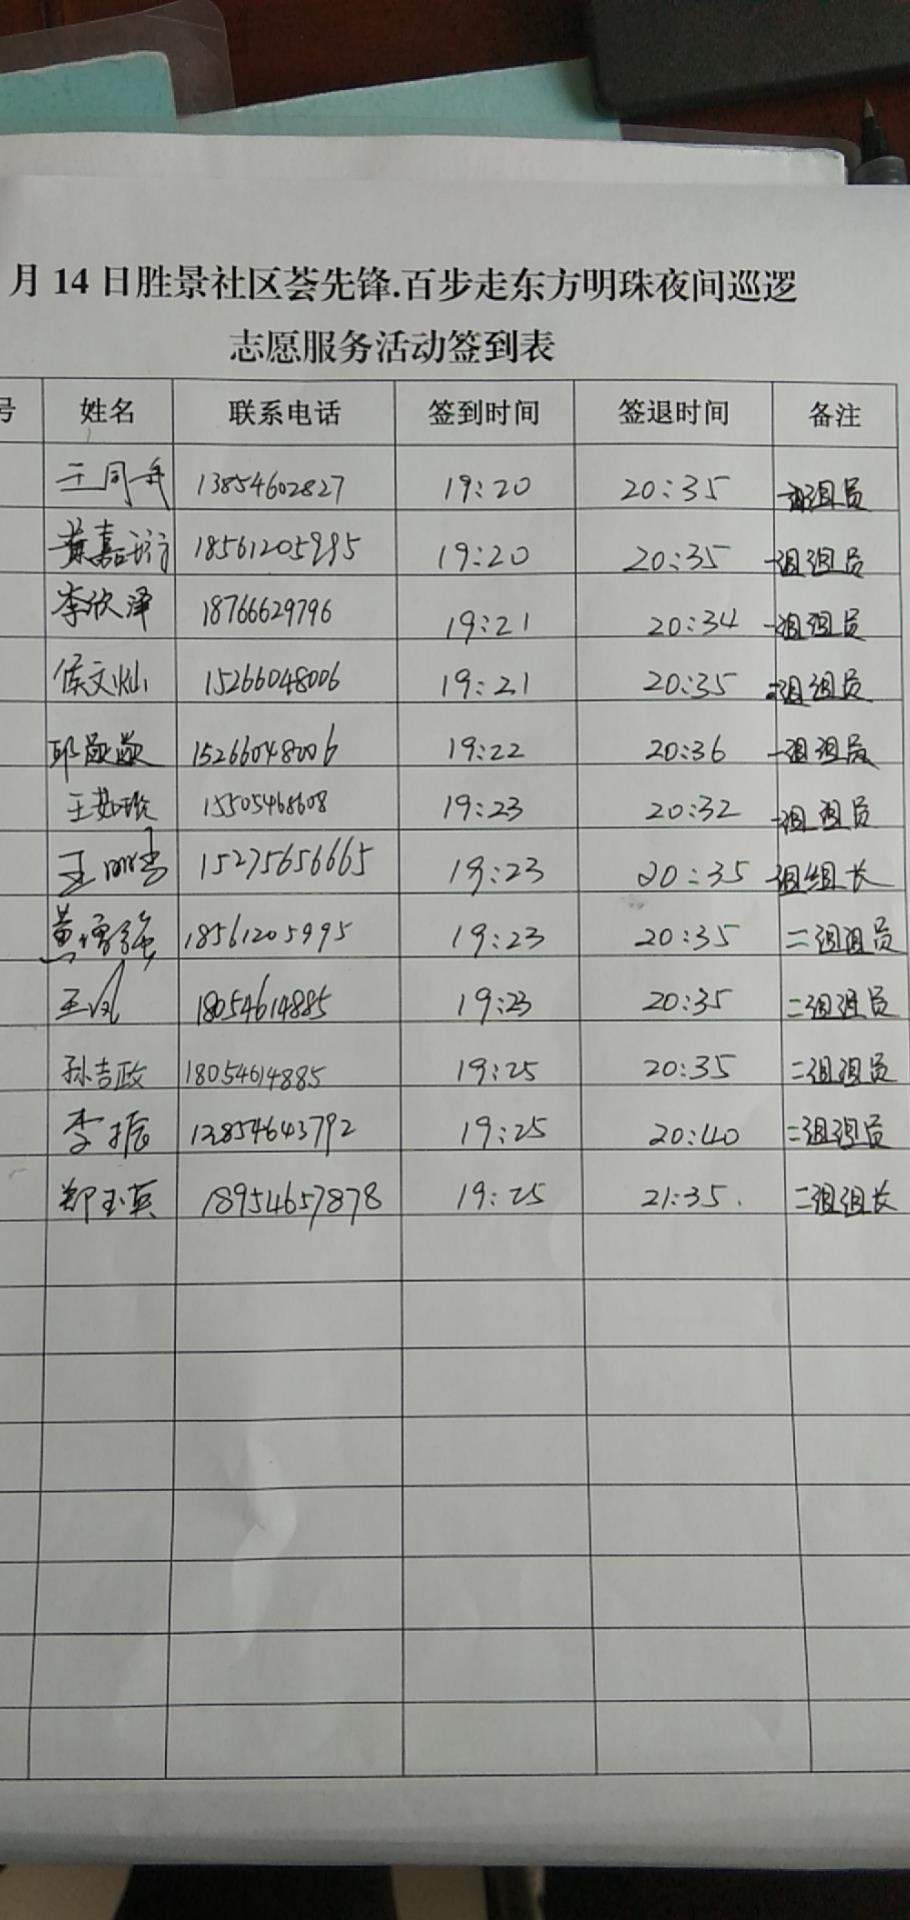 月14日胜景社区荟先锋.百步走东方明珠夜间巡逻
志愿服务活动签到表
号 姓名 联系电话 签到时间 签退时间 备注
王同 13854602827 19:20 20:35 组员
黄嘉 18561205995 19:20 20:35 一组组员
李欣泽 18766629796 19:21 20:34 一组组员
侯文灿 15266048006 19:21 20:35 组组员
邱 15266048006 19:22 20:36 一组组员
王 15505468608 19:23 20:32 一组组员
王 15275656665 19:23 20:35 一组组长
黄增强 18561205995 19:23 20:35 二组组员
王凤 18054614885 19:23 20:35 二组组员
孙吉政 18054614885 19:25 20:35 二组组员
李振 13854643792 19:25 20:40 二组组员
郑玉英 18954657878 19:25 21:35. 二组组长